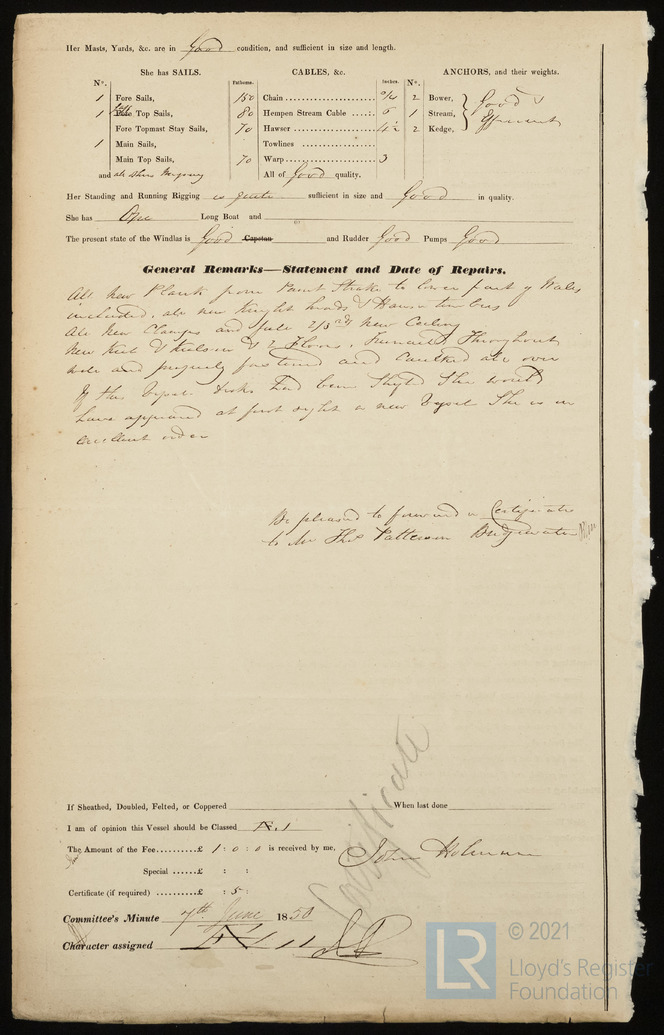 Her Masts, Yards, &c. are in Good condition, and sufficient in size and length.
She has SAILS. CABLES, &c. ANCHORS, and their weights.
N°. Fathoms. Inches. N°.
1 Fore Sails, 150 Chain 2 Bower, Good &
1 Fore Top Sails, 80 Hempen Stream Cable 6 1 Stream, Efficient
Fore Topmast Stay Sails, 70 Hawser 4½ 2 Kedge,
1 Main Sails, Towlines
Main Top Sails, 70 Warp 3
and all others All of Good quality.
Her Standing and Running Rigging is quite sufficient in size and Good in quality.
She has One Long Boat and
The present state of the Windlas is Good Capstan and Rudder Good Pumps Good
General Remarks—Statement and Date of Repairs.
All New Plank from Paint Strake to lower part of Wales
included, all new Knight heads & Hawse timbers
All New Clamps and full 2/3rds New Ceiling
New Keel & Keelson & 2 Floors, Treenails Throughout
and properly fastened and Caulked all over
If this Vessel had been She would
have appeared at first sight a new Vessel She is in
excellent order
Be pleased to forward a Certificate
to Mr Thos Patterson Bridgwater
If Sheathed, Doubled, Felted, or Coppered When last done
I am of opinion this Vessel should be Classed Æ.1
The Amount of the Fee.........£ 1 : 0 : 0 is received by me,
John Holman
Special ......£ : :
Certificate (if required) .......£ : 5 :
Certificate
Committee's Minute 7th June 1850
Character assigned Æ 1
© 2021
LR
Lloyd's Register
Foundation